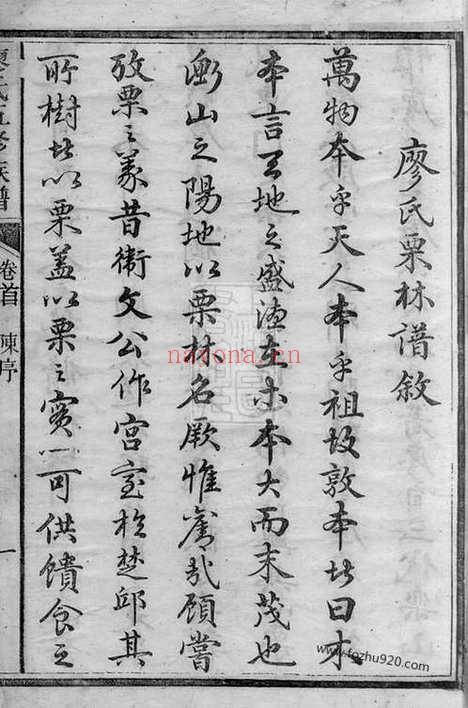 廖氏栗林譜敘
萬物本乎天人本乎祖故敦本者曰木
本言天地之盛德在木本大而末茂也
衡山之陽地以栗林名厥惟舊哉顧嘗
攷栗之義昔衛文公作宮室於楚邱其
所樹者以栗蓋以栗之實可供饋食之
廖氏五修族譜
卷首
陳序
一
nayona.cn
www.fozhu920.com